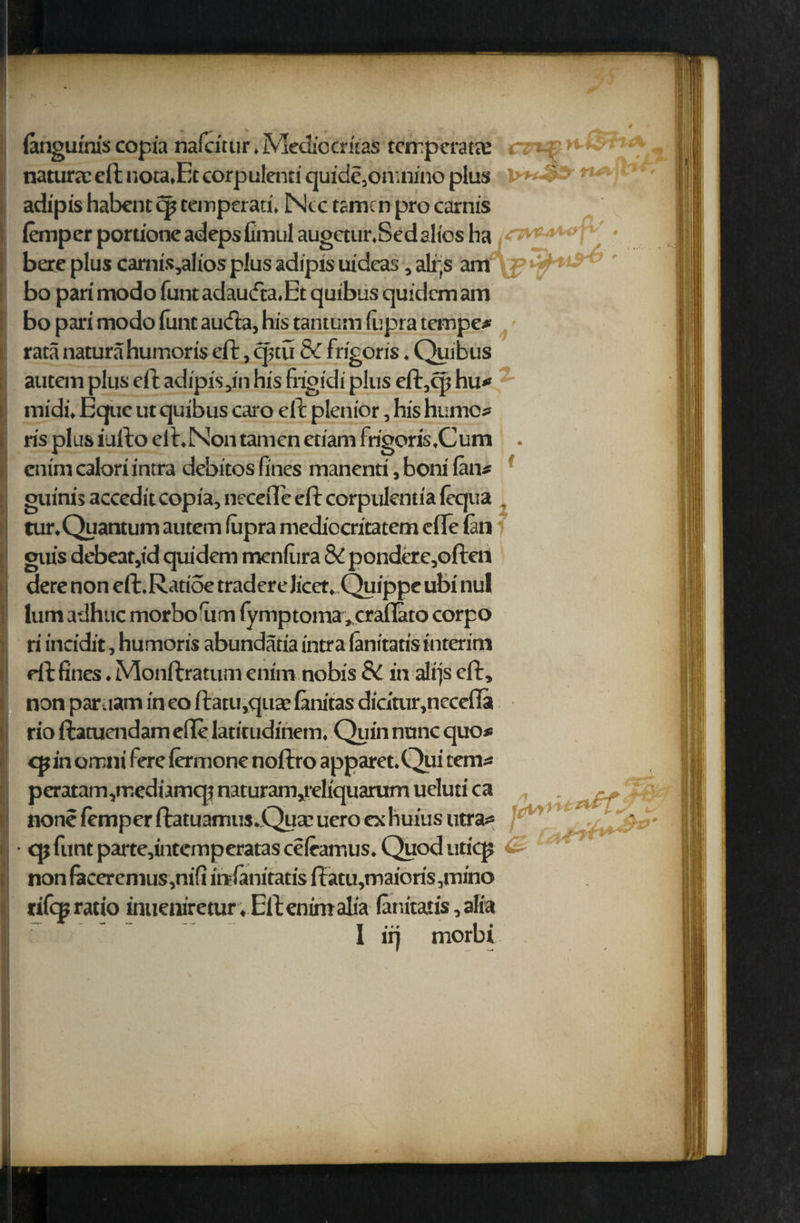 ſanguinis copia naſcitur. Mediocritas temperatæ
naturæ eſt nota. Et corpulenti quidē, omnino plus
adipis habent ꝙ̃ temperati. Nec tamen pro carnis
ſemper portione adeps ſimul augetur. Sed alios ha
bere plus carnis, alios plus adipis uideas, alijs am
bo pari modo ſunt adaucta. Et quibus quidem am
bo pari modo ſunt aucta, his tantum ſupra tempe⸗
ratā naturā humoris eſt, ꝙ̃tū & frigoris. Quibus
autem plus eſt adipis, in his frigidi plus eſt, ꝙ̃ hu⸗
midi. Eque ut quibus caro eſt plenior, his humo⸗
ris plus iuſto eſt. Non tamen etiam frigoris. Cum
enim calori intra debitos fines manenti, boni ſan⸗
guinis accedit copia, neceſſe eſt corpulentia ſequa
tur. Quantum autem ſupra mediocritatem eſſe ſan
guis debeat, id quidem menſura & pondere, oſten
dere non eſt. Ratiōe tradere licet. Quippe ubi nul
lum adhuc morboſum ſymptoma, craſſato corpo
ri incidit, humoris abundātia intra ſanitatis interim
eſt fines. Monſtratum enim nobis & in alijs eſt,
non paruam in eo ſtatu, quæ ſanitas dicitur, neceſſa
rio ſtatuendam eſſe latitudinem. Quin nunc quo⸗
qꝫ in omni fere ſermone noſtro apparet. Qui tem⸗
peratam, mediamqꝫ naturam, reliquarum ueluti ca
nonē ſemper ſtatuamus. Quæ uero ex huius utra⸗
qꝫ ſunt parte, intemperatas cēſeamus. Quod utiqꝫ
non faceremus, niſi in ſanitatis ſtatu, maioris, mino
riſqꝫ ratio inueniretur. Eſt enim alia ſanitatis, alia
I iij morbi